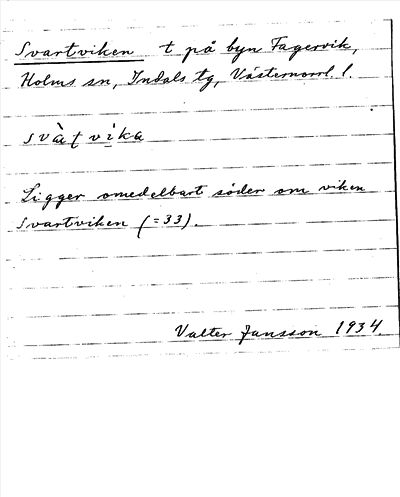 Svartviken t på byn Fagervik,
Holms sn, Indals tg, Västernorrl. l.
svàṭvi̊ka
Ligger omedelbart söder om viken
Svartviken (=33).
Valter Jansson 1934